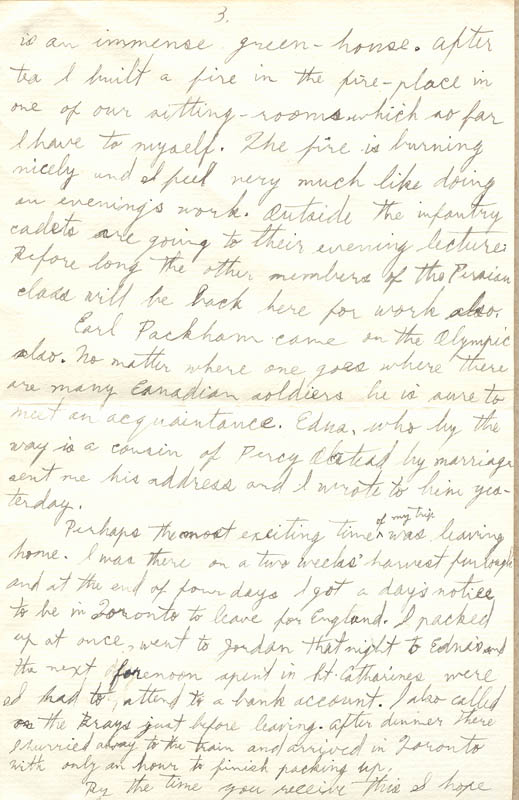 3.
is an immense green-house. After
tea I built a fire in the fire-place in
one of our sitting-rooms which so far
I have to myself. The fire is burning
nicely and I feel very much like doing
an evening's work. Outside the infantry
cadets are going to their evening lecture.
Before long the other members of the Persian
class will be back here for work also.
Earl Packham came on the Olympic
also. No matter where one goes where there
are many Canadian soldiers he is sure to
meet an acquaintance. Edna, who by the
way is a cousin of Percy by marriage
sent me his address and I wrote to him yes-
terday.
Perhaps the most exciting time of my trip was leaving
home. I was there on a two weeks' harvest furlough
and at the end of four days I got a day's notice
to be in Toronto to leave for England. I packed
up at once, went to Jordan that night to Edna's and
the next forenoon spent in St. Catharines were
I had to attend to a bank account. I also called
on the Brays just before leaving. After dinner there
I hurried away to the train and arrived in Toronto
with only an hour to finish packing up.
By the time you receive this I hope